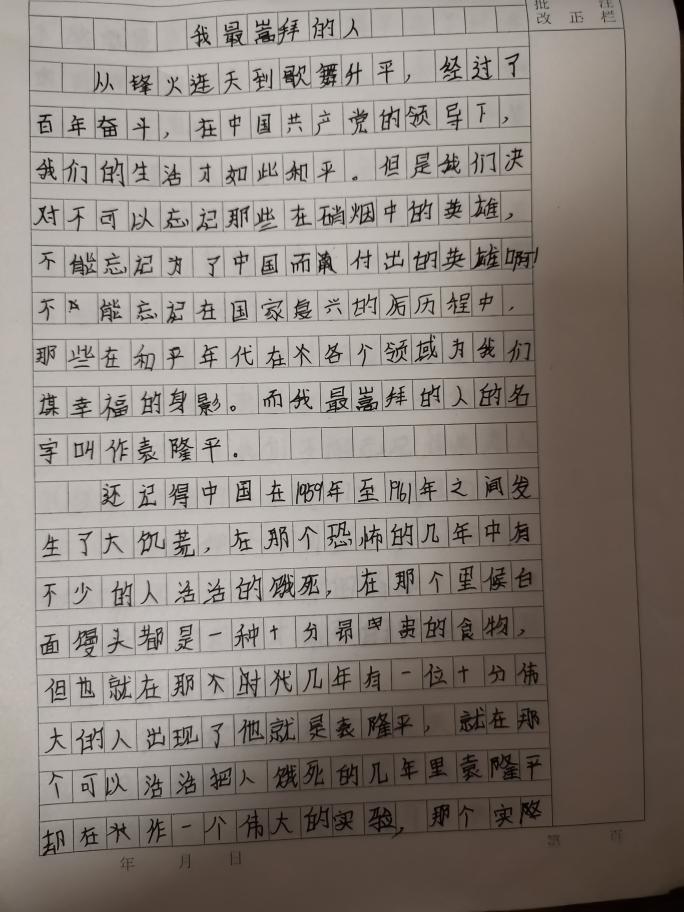 批 注
改 正 栏
我最嵩拜的人
从锋火连天到歌舞升平，经过了
百年奋斗，在中国共产党的领导下，
我们的生活才如此和平。但是我们决
对不可以忘记那些在硝烟中的英雄，
不能忘记为了中国而付出的英雄啊！
不能忘记在国家复兴的后历程中，
那些在和平年代在各个领域为我们
谋幸福的身影。而我最嵩拜的人的名
字叫作袁隆平。
还记得中国在1959年至1961年之间发
生了大饥荒，在那个恐怖的几年中有
不少的人活活的饿死，在那个里候白
面馒头都是一种十分昂贵的食物，
但也就在那个时代几年有一位十分伟
大的人出现了他就是袁隆平，就在那
个可以活活把人饿死的几年里袁隆平
却在作一个伟大的实验，那个实际
年 月 日
第 页